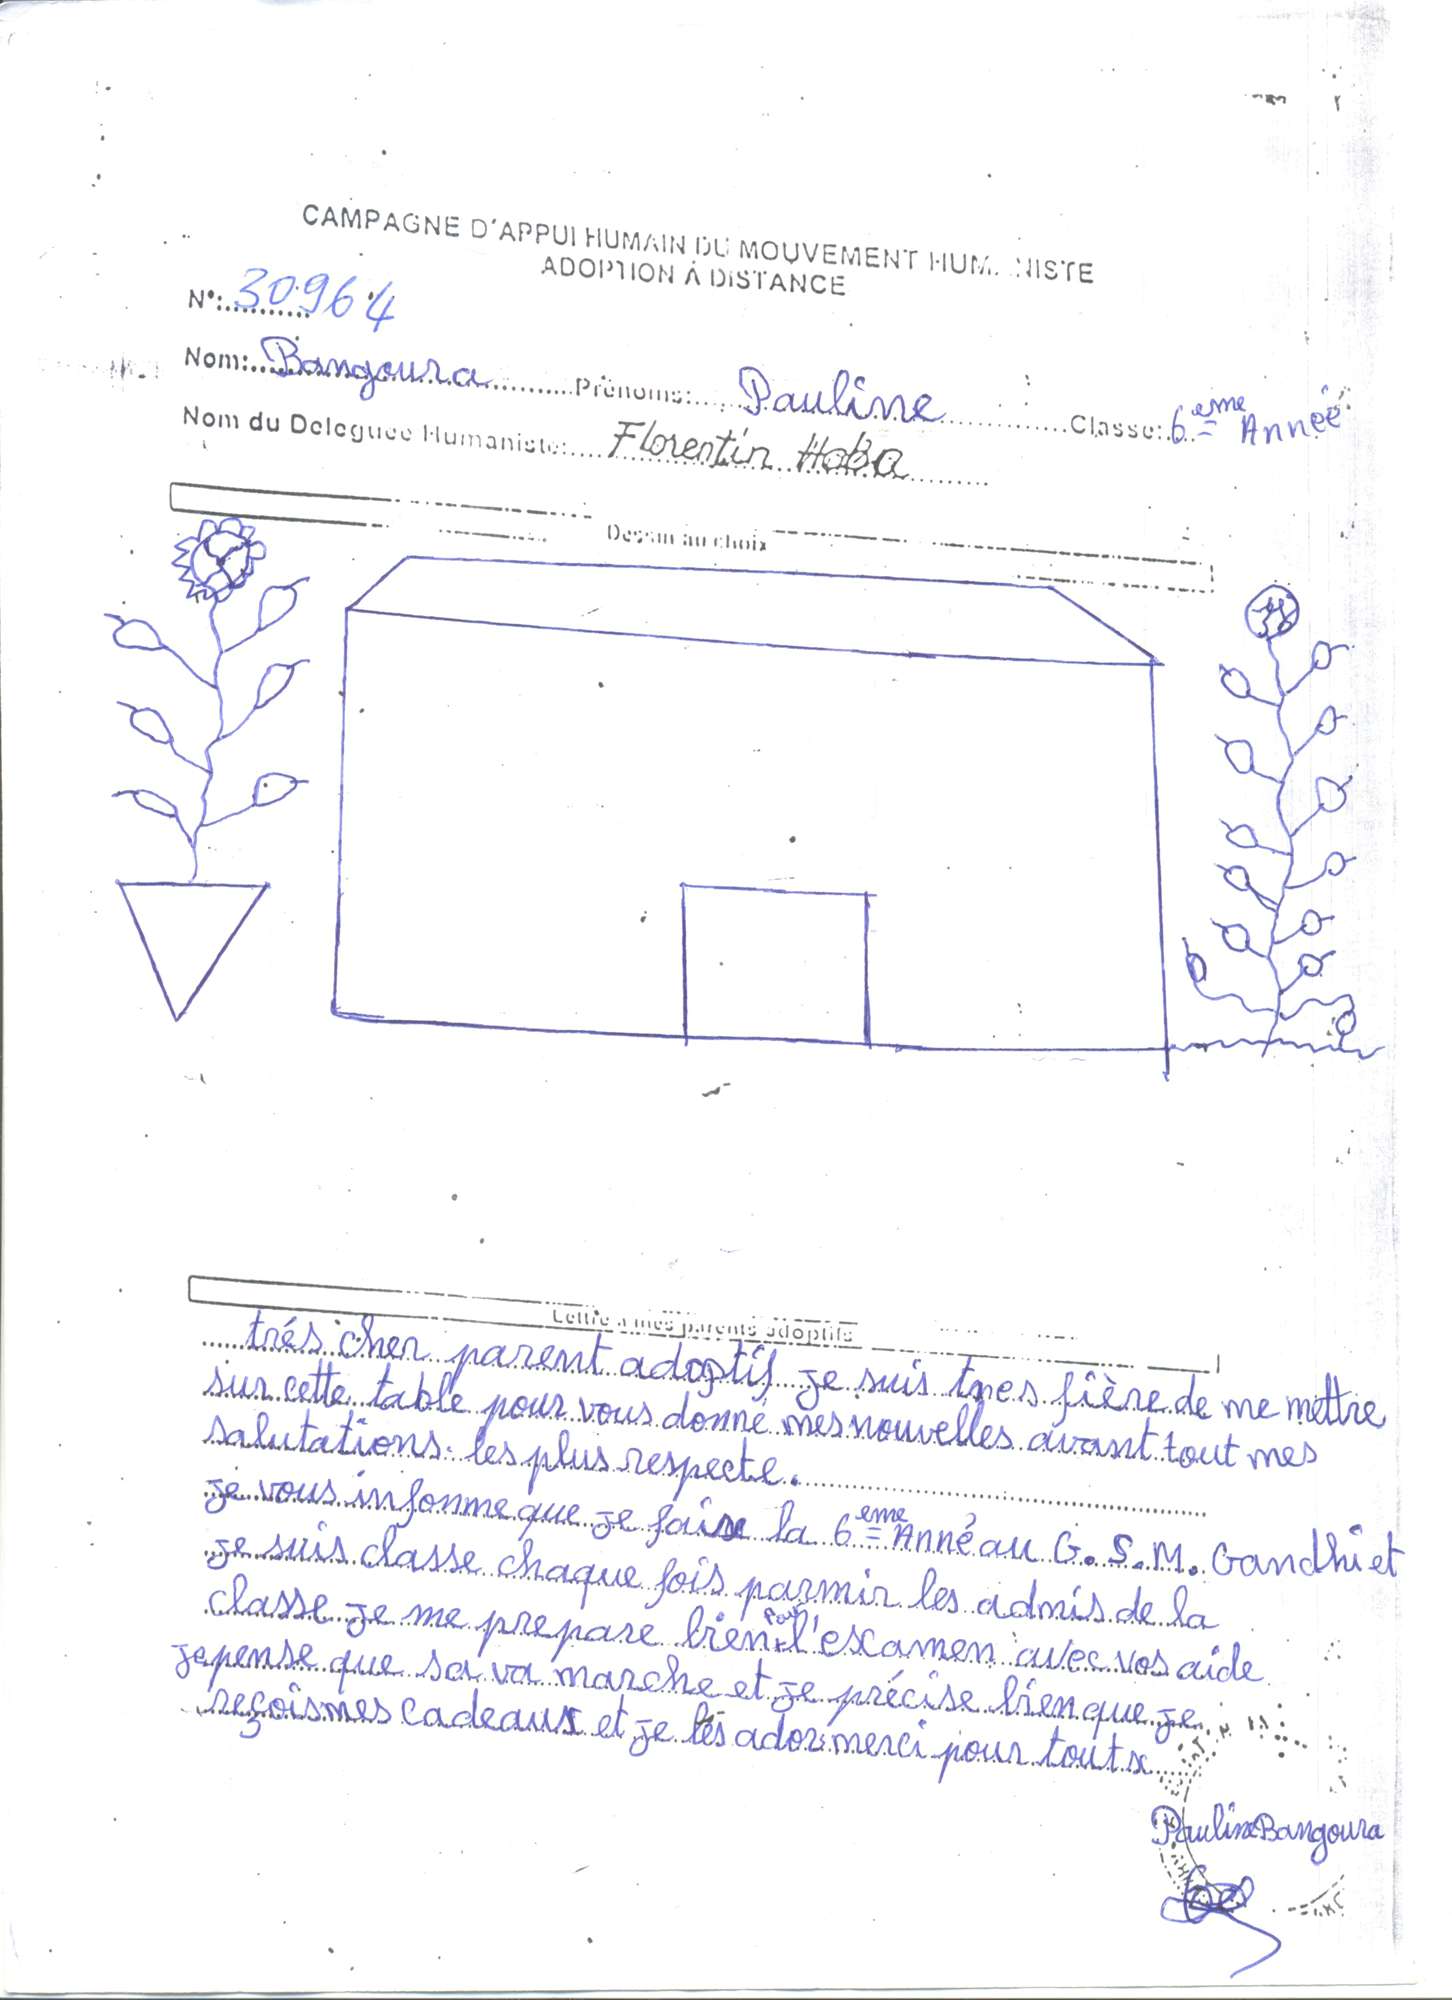 CAMPAGNE D'APPUI HUMAIN DU MOUVEMENT HUMANISTE
ADOPTION À DISTANCE
N°: 30964
Nom: Bangoura Prénoms: Pauline Classe: 6eme Année
Nom du Deleguée Humaniste: Florentin Haba
Dessin au choix
Lettre a mes parents adoptifs
trés cher parent adoptif je suis tres fière de me mettre
sur cette table pour vous donné mes nouvelles avant tout mes
salutations les plus respecte.
je vous informe que je fais la 6eme Anné au G.S.M. Gandhi et
je suis classe chaque fois parmir les admis de la
classe je me prepare bien pour l'escamen avec vos aide
je pense que sa va marche et je précise bien que je
reçois mes cadeaux et je les ador merci pour tout
Pauline Bangoura